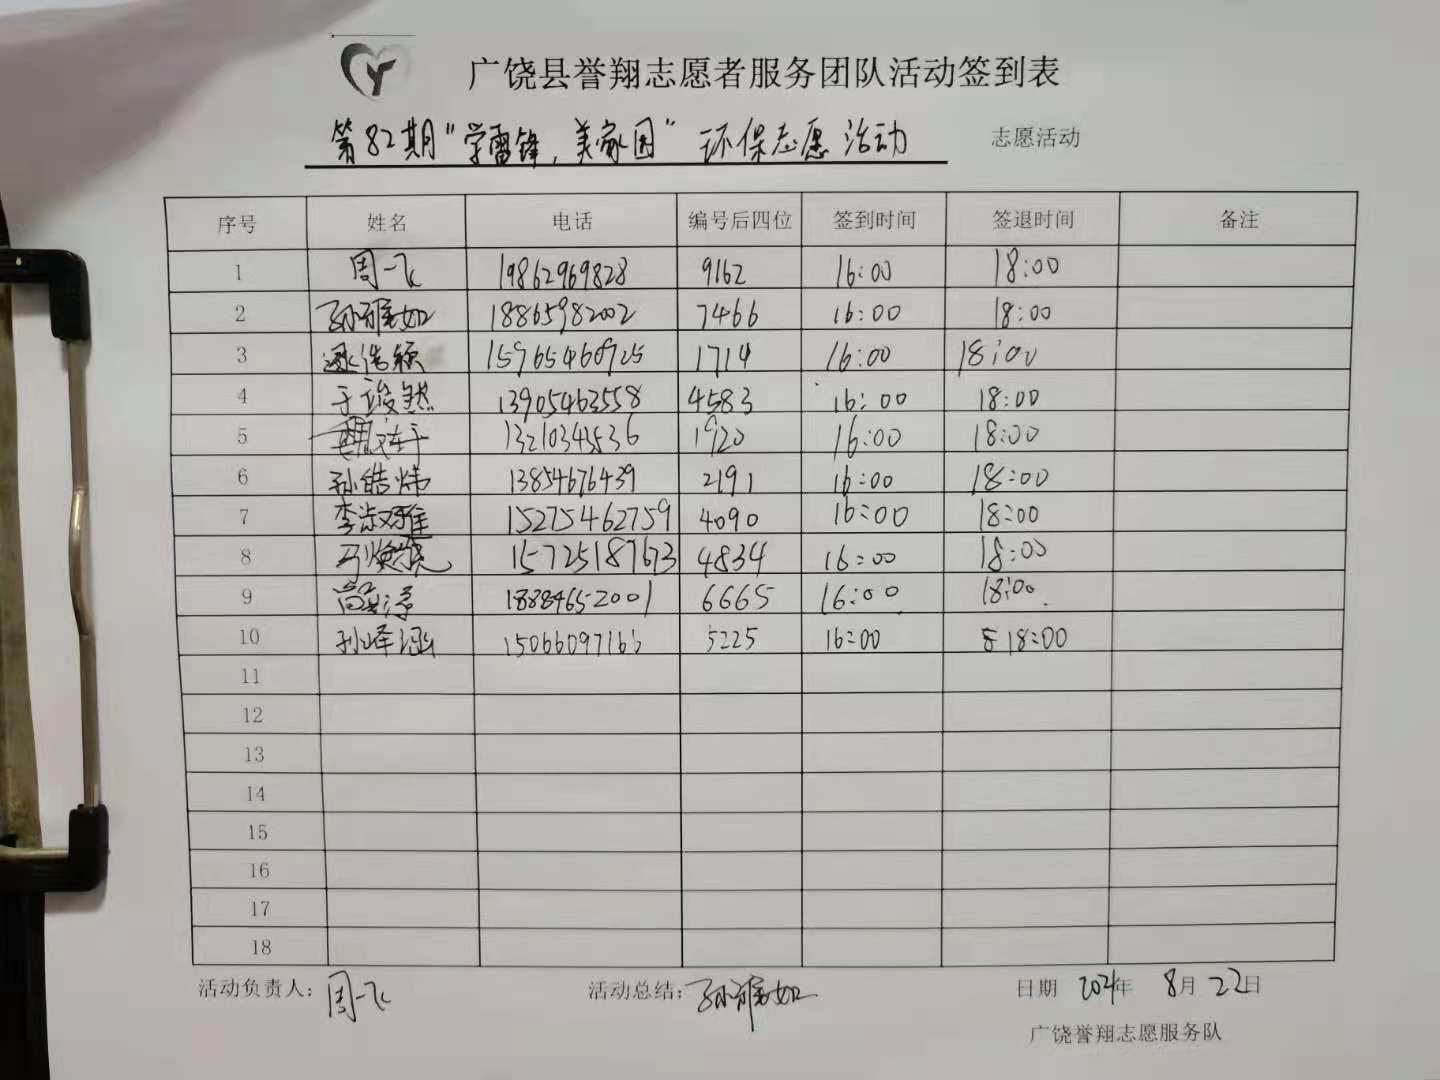 广饶县誉翔志愿者服务团队活动签到表
第82期"学雷锋,美家园"环保志愿活动 志愿活动
序号 姓名 电话 编号后四位 签到时间 签退时间 备注
1 周一飞 19862969828 9162 16:00 18:00
2 孙雅如 18865982002 7466 16:00 18:00
3 15965460925 1714 16:00 18:00
4 于浚然 13905463558 4583 16:00 18:00
5 13210343536 1920 16:00 18:00
6 孙皓炜 13854676439 2191 16:00 18:00
7 李淑雅 15275462759 4090 16:00 18:00
8 15725187673 4834 16:00 18:00
9 18884652001 6665 16:00 18:00
10 孙峄涵 15066097166 5225 16:00 18:00
11
12
13
14
15
16
17
18
活动负责人: 周一飞 活动总结: 孙雅如 日期 2021年 8月 22日
广饶誉翔志愿服务队